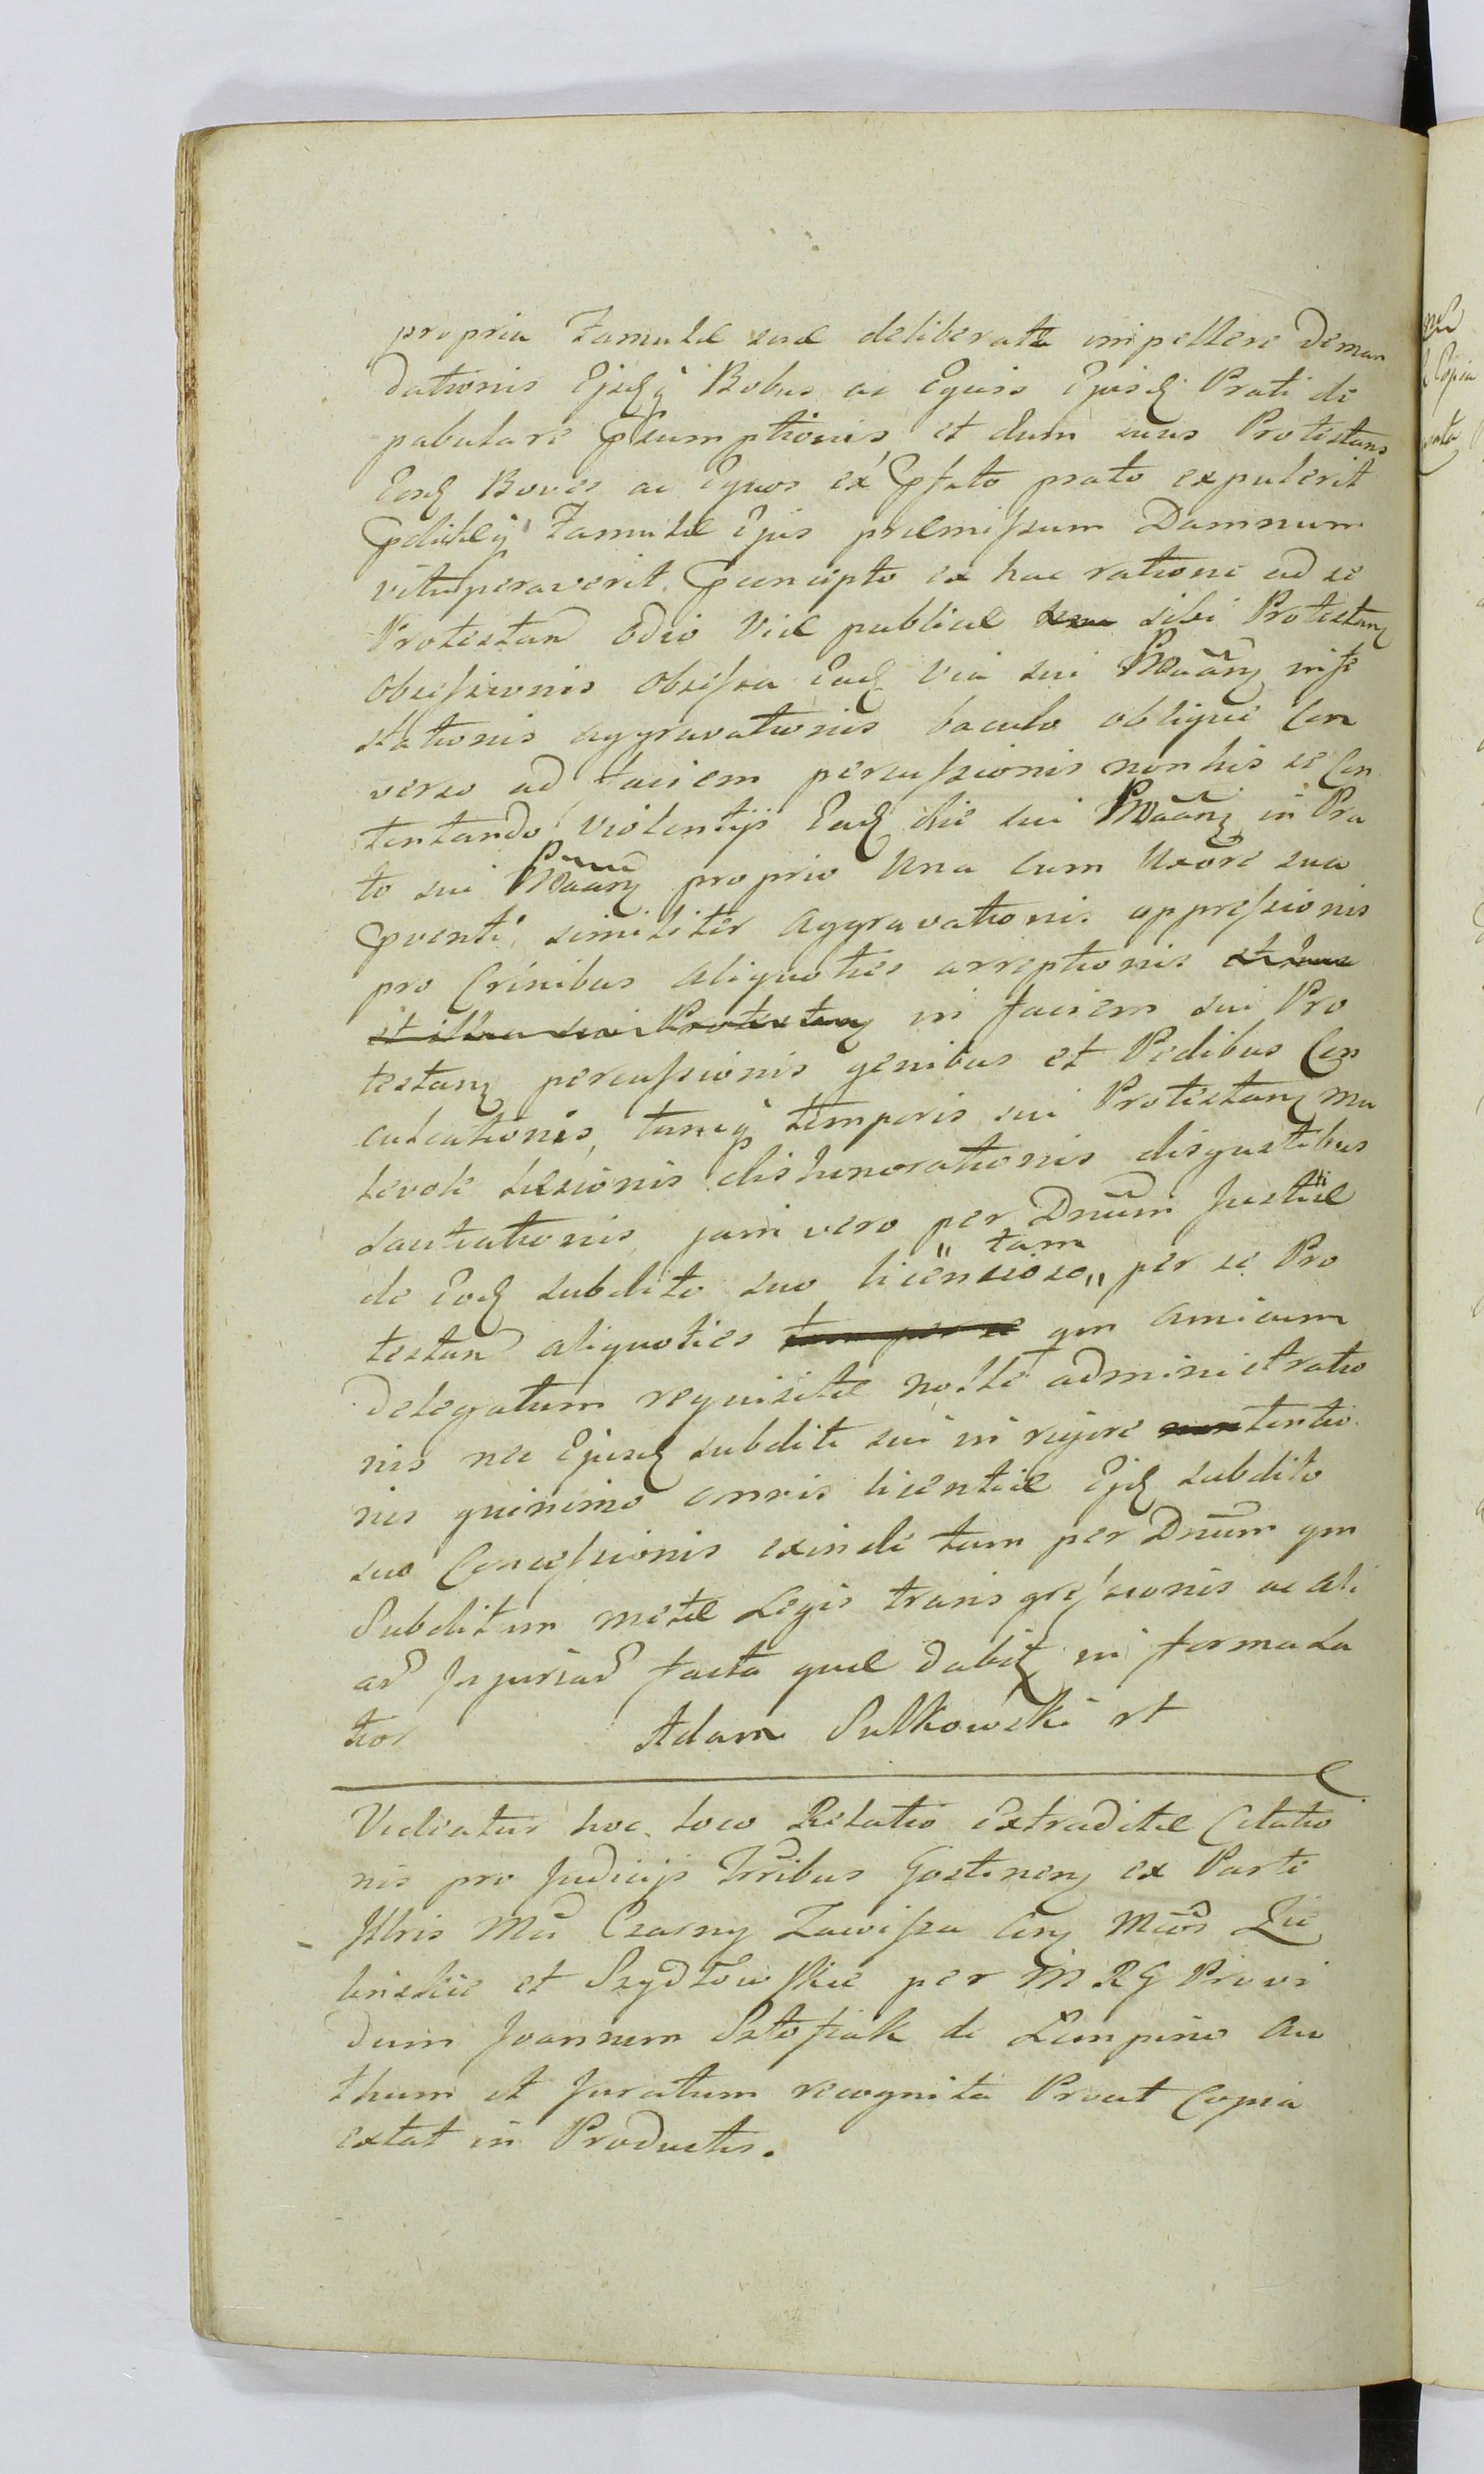 propria Famulæ suæ deliberate impellere Deman
dationis Ejsdq Bobus ac Equis Ejusd Prati de
pabulare psumptionis, et dum suus Protestans
Eosd Boves ac Equos ex pfato prato expulerit
pdictæq Famulæ Ejus præmissum Damnum
vituperaverit. pconcepto ex hac ratione ad se
Protestan Odio Viæ publicæ sibi Protestan
obsessionis obsessa Ead Via sui
stationis aggravationis baculo oblique con
verso ad faciem percussionis non his se Con
tentando Violentijs Ead die sui in Pra
to sui proprio una cum Uxore sua
pventi similiter aggravationis oppressionis
pro Crinibus aliquoties arreptionis
et illa sui Protestan in faciem sui Pro
testan percussionis genibus et Pedibus Con
culcationis, tuncq temporis sui Protestan ma
levole læsionis dishonorationis disgustibus
sautiationis, jam vero per Dnum Justiæ
de Eod subdito suo licentioso tam per se Pro
testan aliquoties tam per se qm amicum
Delegatum requisitæ nolle administratio
nis nec Ejusd subditi sui in rigore tentio
nis quinimo omnis licentiæ Ejd subdito
suo Concessionis exinde tam per Dnum qm
Subditum metæ Legis transgressionis ac ali
ar Injuriar facta quæ dabit informala
tior Adam Sulkowski rt
Videatur hoc loco Relatio Extraditæ Citatio
nis pro Judicijs Trribus Gostinen ex Parte
Illris Mci Czarny Zawisza Con Mcos Zie
linskie et Szydłowskie per M R G Provi
dum Joannem de Lempino au
thum et Juratum recognita Prout Copia
extat in Productis.